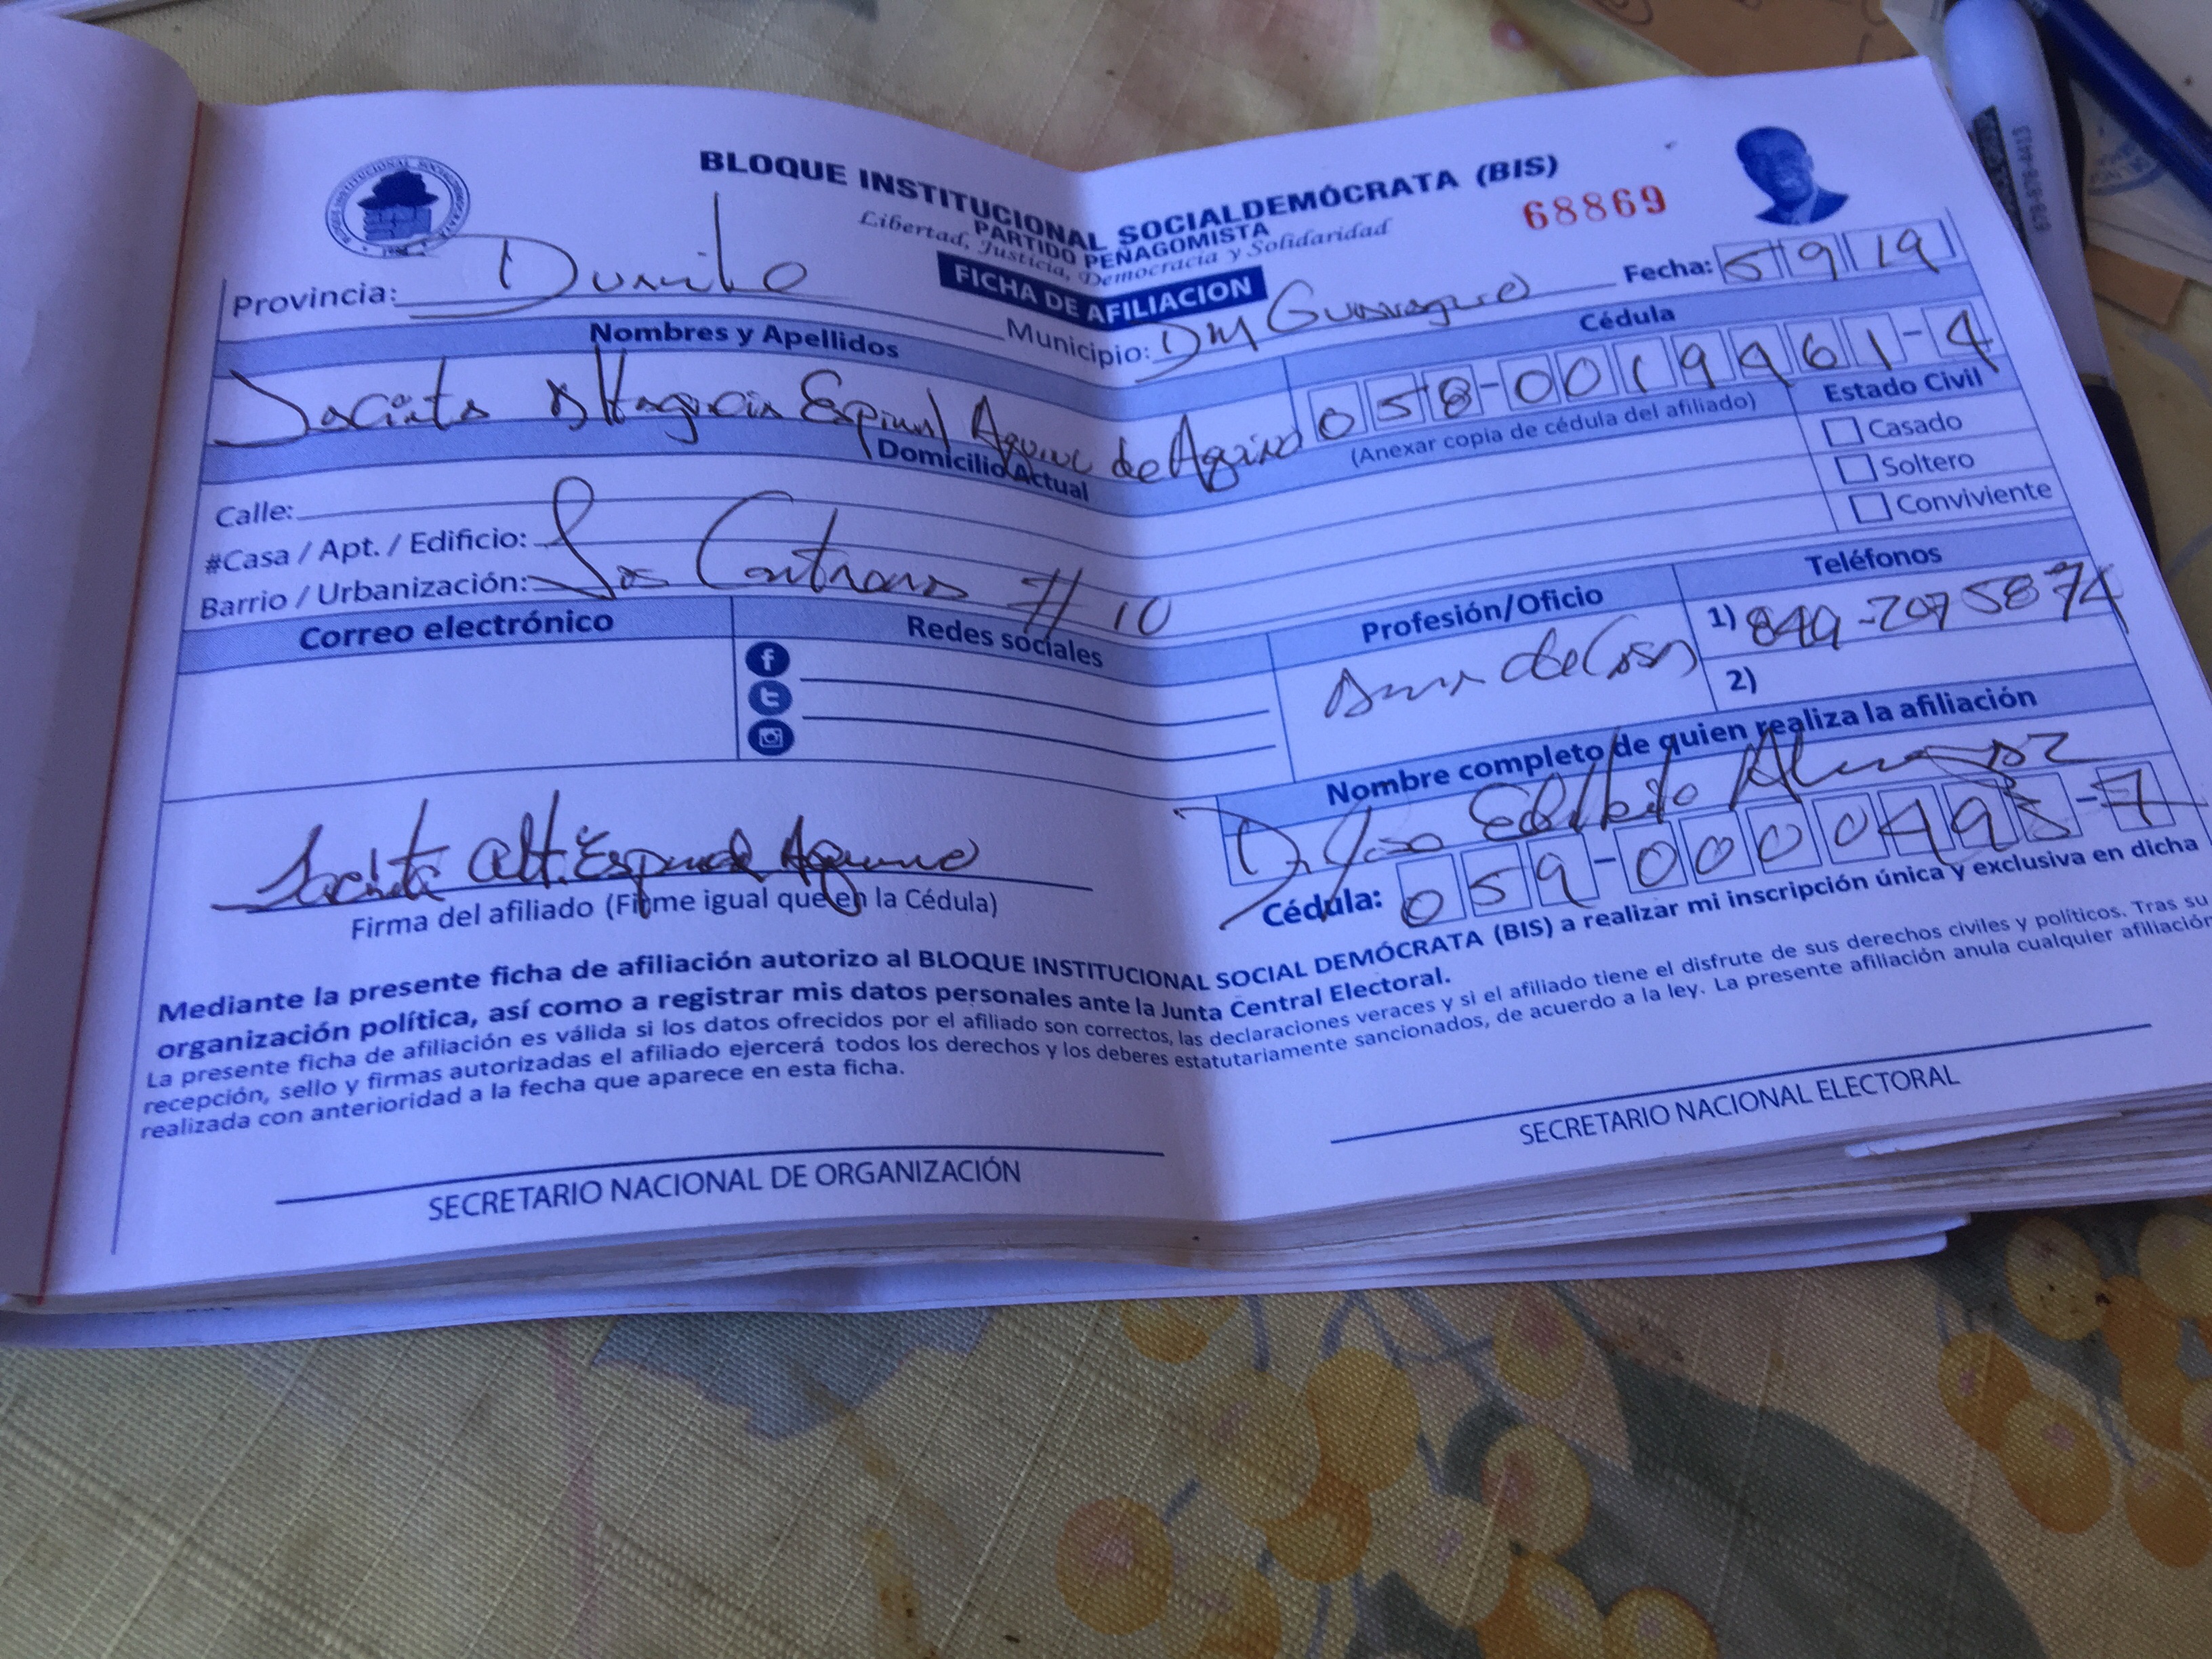 BLOQUE INSTITUCIONAL SOCIALDEMÓCRATA (BIS)
PARTIDO PEÑAGOMISTA
Libertad, Justicia, Democracia y Solidaridad
68869
FICHA DE AFILIACION
Fecha: 5 9 19
Provincia:
Municipio: DM
Nombres y Apellidos
Cédula
Espinal de 058-0019961-4
(Anexar copia de cédula del afiliado)
Estado Civil
Casado
Soltero
Conviviente
Domicilio Actual
Calle:
#Casa / Apt. / Edificio:
Barrio / Urbanización: # 10
Correo electrónico
Redes sociales
Profesión/Oficio
Teléfonos
de Casa
1) 849-207 5874
2)
Nombre completo de quien realiza la afiliación
Dr.
Cédula: 059-0000498-7
Alt. Espinal
Firma del afiliado (Firme igual que en la Cédula)
Mediante la presente ficha de afiliación autorizo al BLOQUE INSTITUCIONAL SOCIAL DEMÓCRATA (BIS) a realizar mi inscripción única y exclusiva en dicha
organización política, así como a registrar mis datos personales ante la Junta Central Electoral.
La presente ficha de afiliación es válida si los datos ofrecidos por el afiliado son correctos, las declaraciones veraces y si el afiliado tiene el disfrute de sus derechos civiles y políticos. Tras su
recepción, sello y firmas autorizadas el afiliado ejercerá todos los derechos y los deberes estatutariamente sancionados, de acuerdo a la ley. La presente afiliación anula cualquier afiliación
realizada con anterioridad a la fecha que aparece en esta ficha.
SECRETARIO NACIONAL DE ORGANIZACIÓN
SECRETARIO NACIONAL ELECTORAL